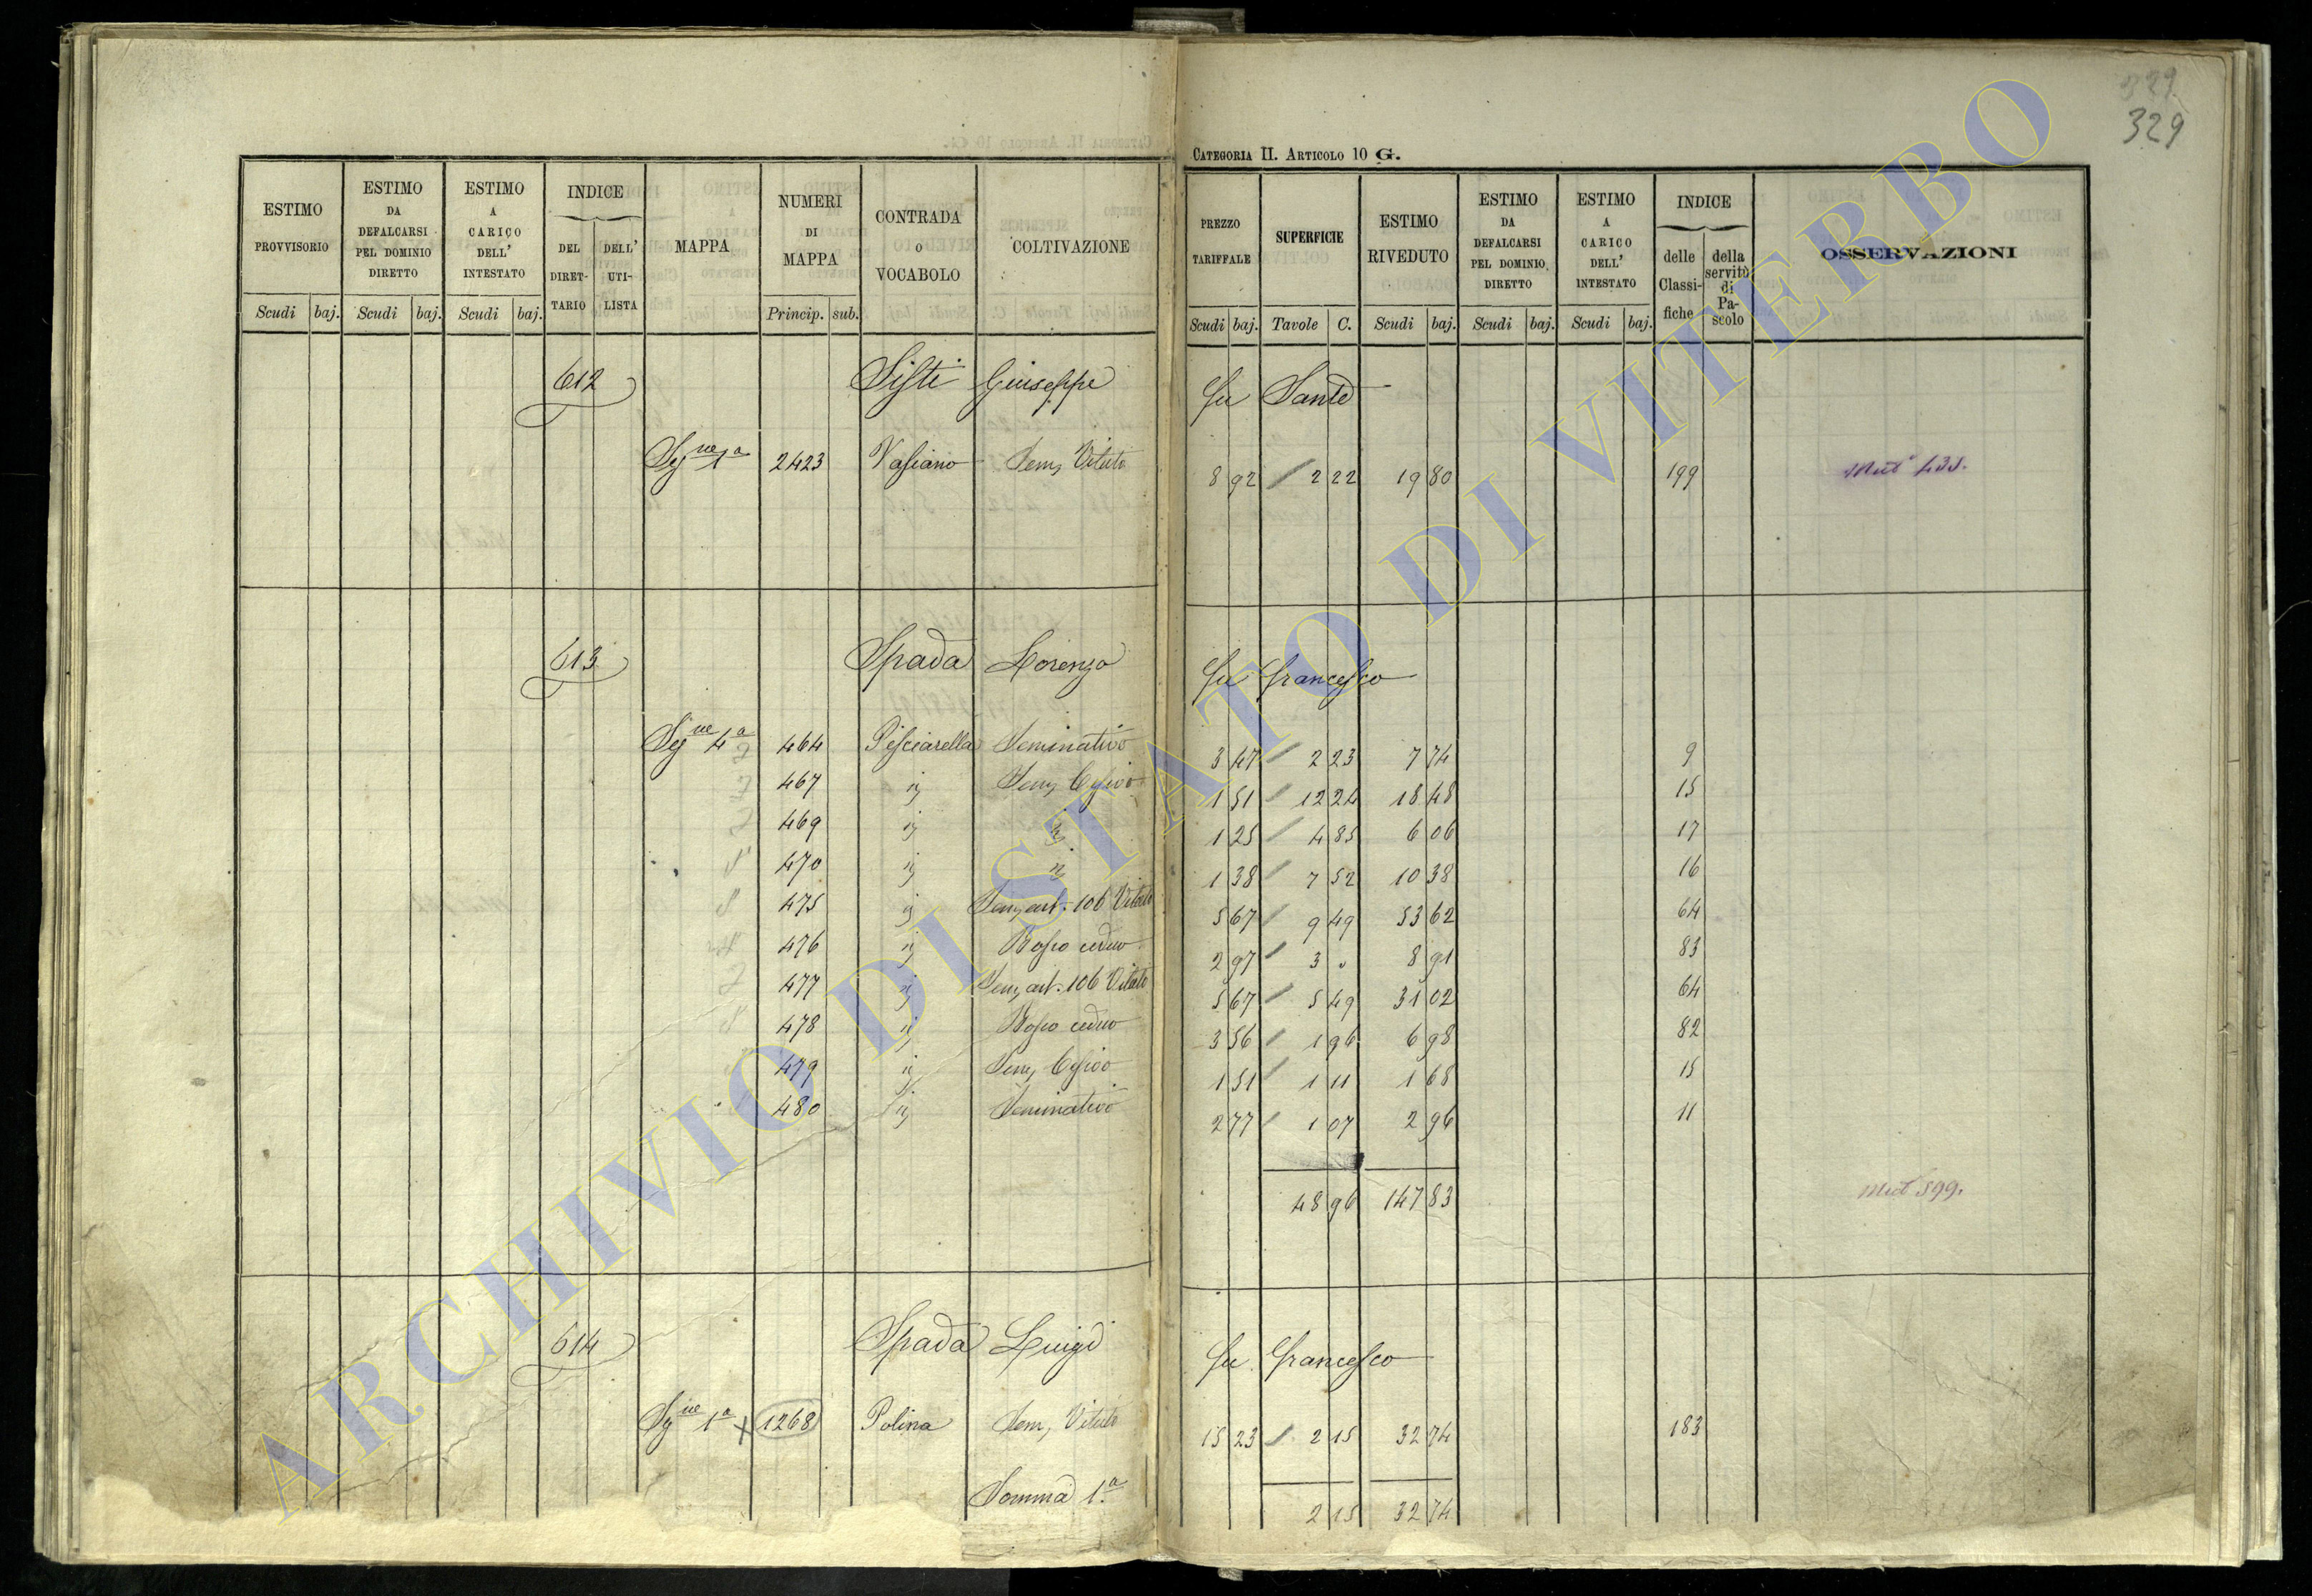 329
329
CATEGORIA II. ARTICOLO 10 G.
ESTIMO PROVVISORIO
ESTIMO DA DEFALCARSI PEL DOMINIO DIRETTO
ESTIMO A CARICO DELL' INTESTATO
INDICE
DEL DIRET-TARIO
DELL' UTI-LISTA
MAPPA
NUMERI DI MAPPA
CONTRADA O VOCABOLO
COLTIVAZIONE
PREZZO TARIFFALE
SUPERFICIE
ESTIMO RIVEDUTO
ESTIMO DA DEFALCARSI PEL DOMINIO DIRETTO
ESTIMO A CARICO DELL' INTESTATO
INDICE
delle Classi-fiche
della servitù di Pa-scolo
OSSERVAZIONI
Scudi baj. Scudi baj. Scudi baj. Princip. sub.
Scudi baj. Tavole C. Scudi baj. Scudi baj. Scudi baj.
612 Sisti Giuseppe fu Sante
Sez ne 1a 2423 Vasiano Sem, Vitato 8 92 2 22 19 80 199 Mut 435.
613 Spada Lorenzo fu Francesco
Sez ne 4a 464 Pisciarella Seminativo 3 47 2 23 7 74 9
467 ij Sem, Cesivo 1 51 12 24 18 48 15
469 ij ij 1 25 4 85 6 06 17
470 ij ij 1 38 7 52 10 38 16
475 ij Sem, art. 106 Vitato 5 67 9 49 53 62 64
476 ij Bosco ceduo 2 97 3 " 8 91 83
477 ij Sem, art. 106 Vitato 5 67 5 49 31 02 64
478 ij Bosco ceduo 3 56 1 96 6 98 82
479 ij Sem, Cesivo 1 51 1 11 1 68 15
480 ij Seminativo 2 77 1 07 2 96 11
48 96 147 83 Mut 599.
614 Spada Luigi fu Francesco
Sez ne 1a 1268 Polina Sem, Vitato 15 23 2 15 32 74 183
Somma 1.a 2 15 32 74
ARCHIVIO DI STATO DI VITERBO